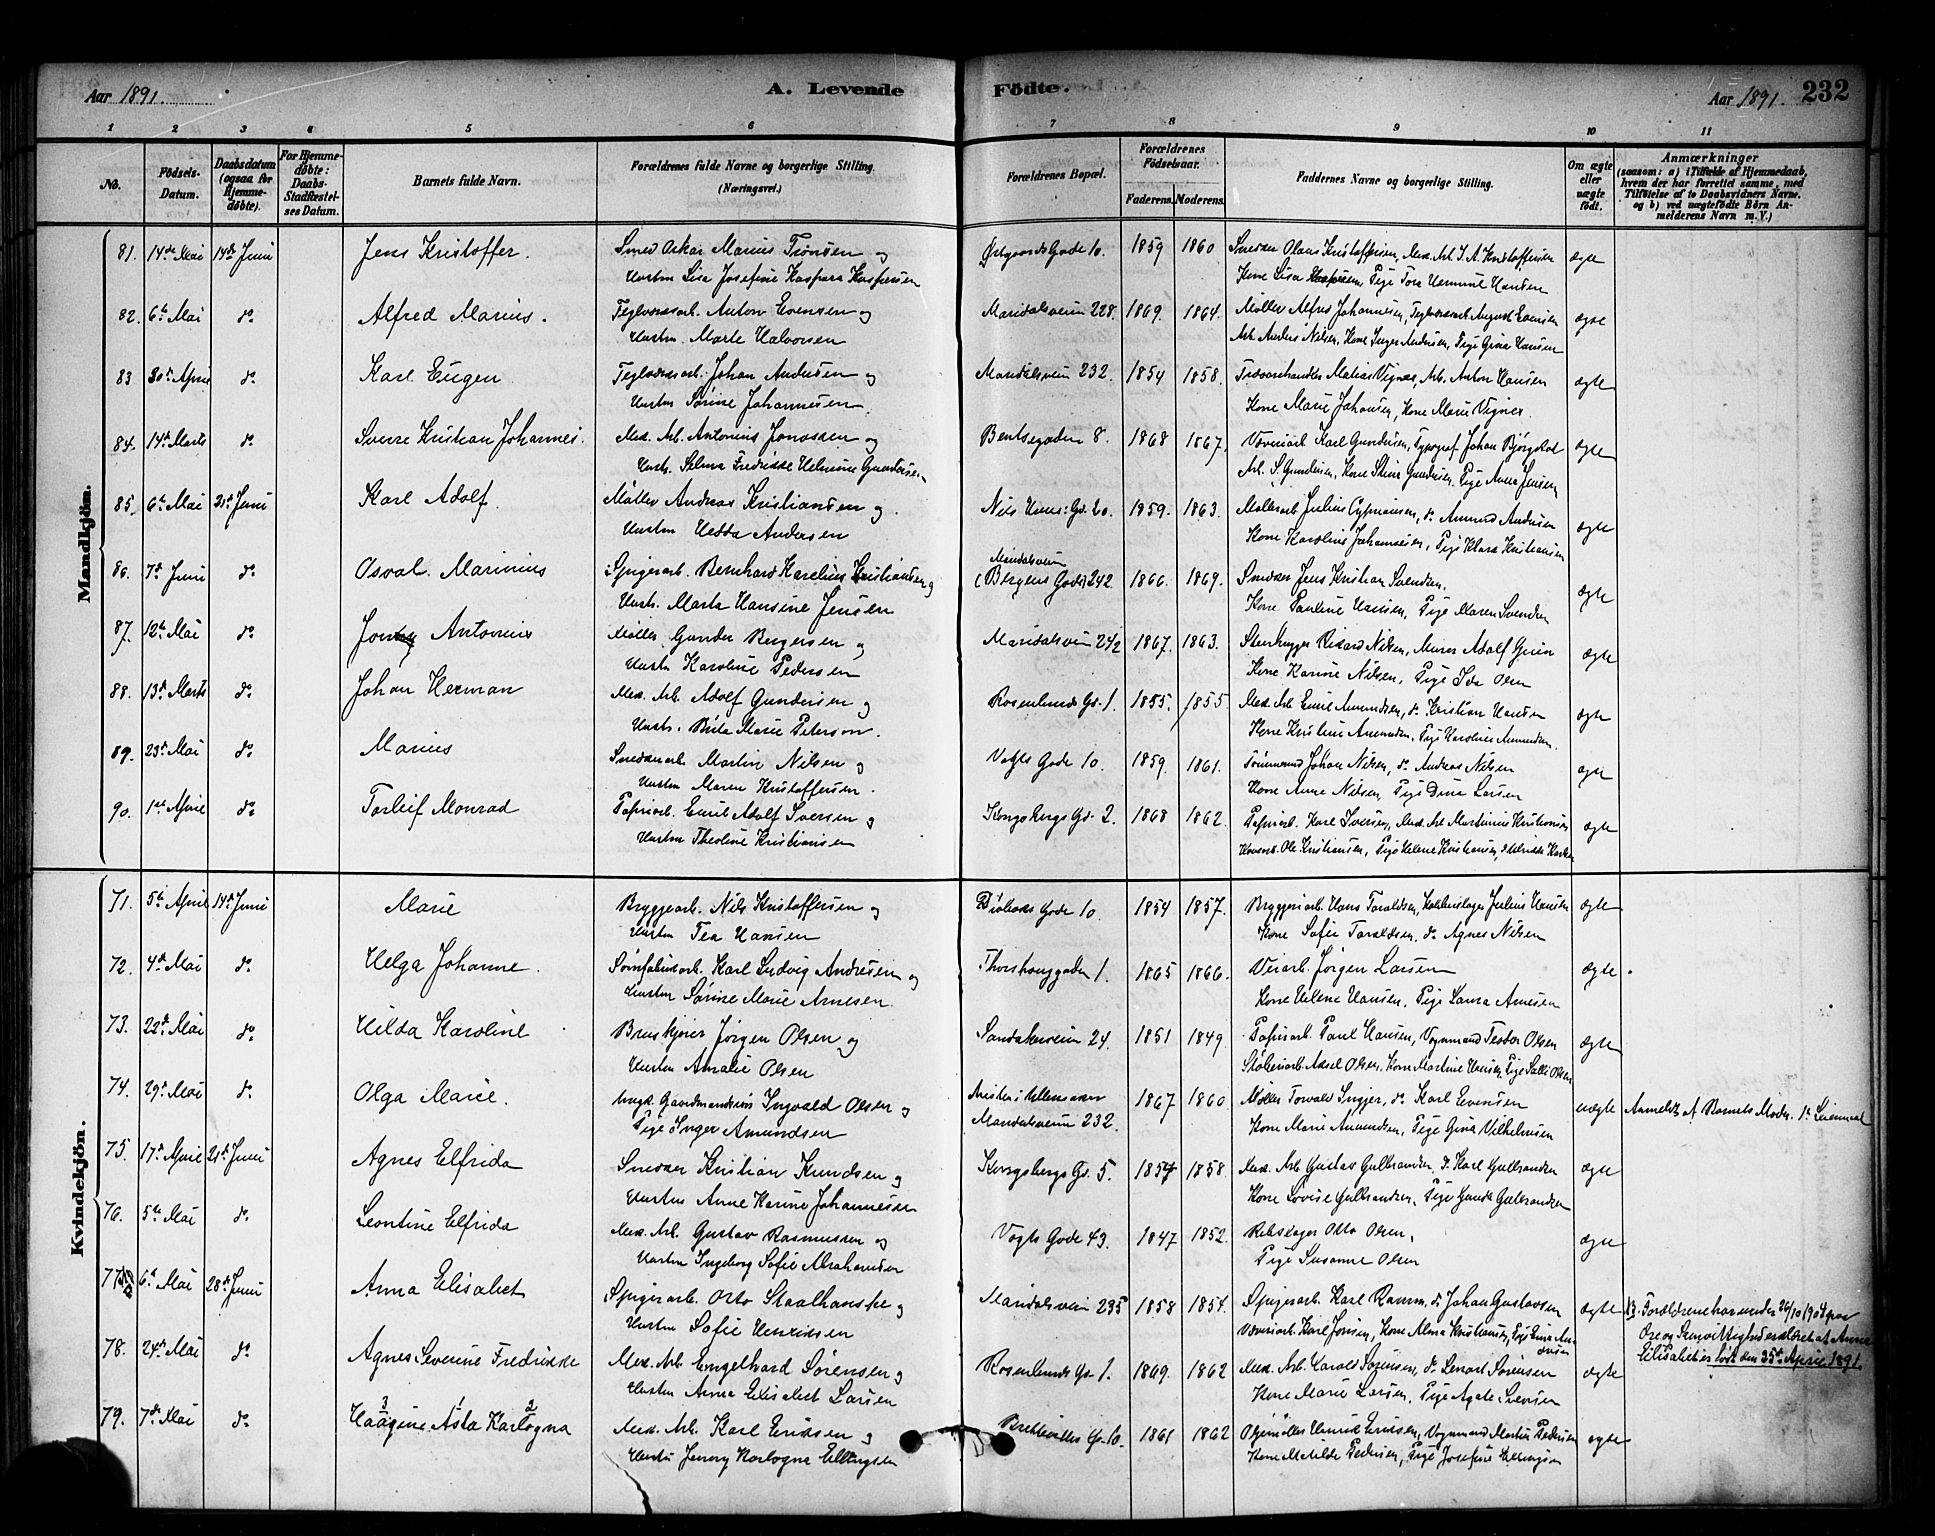 Aar 1891.
A. Levende Fødte.
Aar 1891. 232
1 2 3 4 5 6 7 8 9 10 11
No. Fødsels-Datum. Daabsdatum (ogsaa for Hjemmedøbte). For Hjemmedøbte: Daabs-Stadfæstelses Datum. Barnets fulde Navn. Forældrenes fulde Navne og borgerlige Stilling. (Næringsvei.) Forældrenes Bopæl. Forældrenes Fødselsaar. Faderens. Moderens. Faddernes Navne og borgerlige Stilling. Om ægte eller uægte født. Anmærkninger (saasom: a) i Tilfælde af Hjemmedaab, hvem der har forrettet samme, med Tilføielse af to Daabsvidners Navne. og b) ved uægtefødte Børn Anmelderens Navn m. V.)
Mandkjön.
81. 14de Mai 14de Juni Jens Kristoffer. Smed Oskar Marius Tronsen og 1859 1860 Smedsv Olaus Kristoffersen, Mek. Arb. I. A. Kristoffersen ægte
Hustru Lisa Josefine Kaspara Kaspersen Kone Lisa Pige Tora Hansen
82. 6te Mai do Alfred Marius. Teglværksarb. Anton Evensen og Maridalsveien 228. 1869. 1864. Møller Alfred Johannesen, Teglværksarb August Evensen ægte
Hustru Marte Halvorsen Arb. Anders Nilsen, Kone Inger Andersen, Pige Gina Hansen
83 30te April do Karl Eugen Teglværksarb. Johan Andersen og Maridalsveien 232. 1854 1858. Trævarehandler Matias Vignes, Arb. Anton Hansen ægte
Hustru Sørine Johannesen. Kone Marie Johansen, Kone Marie Vignes
84. 14de Marts do Sverre Kristian Johannes. Mek. Arb. Antonius Jonassen og Bentsegaden 8. 1868 1867. Karl Gundersen, Typograf Johan ægte
Hustr. Selma Fredrikke Gundersen Arb. S. Gundersen, Kone Stina Gundersen, Pige Anna Jensen
85. 6te Mai 21de Juni Karl Adolf. Møller Andreas Kristiansen og Nils Huus: Gd. 20. 1859. 1863. Møllerarb Julius Cyprianisen, do Amund Andersen ægte
Hustru Hedda Andersen Kone Karoline Johannesen, Pige Klara Kristiansen
86. 7de Juni do Osval. Marinius Spigerarb. Bernhard Karelius Kristiansen og Maridalsveien (Bergens Gade) 242 1866. 1869. Smedsv Jens Kristian Svendsen. ægte
Hustr. Marta Hansine Jensen Kone Pauline Hansen, Pige Maren Svendsen
87. 12te Mai do Antonius Møller Gunder Bergersen og Maridalsveien 242 1867. 1863. Stenhugger Rikard Nilsen, Murer Adolf ægte
Hustru Karoline Pedersen Kone Karine Nilsen, Pige Ida Olsen
88. 13de Marts do Johan Herman Mek. Arb. Adolf Gundersen og Rosenlunds Gd. 1. 1855. 1855. Mek. Arb Emil Amundsen, do Kristian Hansen ægte
Hustr. Brita Marie Peterson. Kone Kristine Amundsen, Pige Karoline Amundsen.
89. 23de Mai do Marius Smedearb. Martin Nilsen og Vogts Gade 10. 1859. 1861. Tømmermd Johan Nilsen, do Andreas Nilsen ægte
Hustru Maren Kristoffersen. Kone Anne Nilsen, Pige Dina Larsen
90. 1ste April do Torleif Monrad Papirarb. Emil Adolf Iversen og Kongsbergs Gd. 2. 1868 1862. Papirarb. Karl Iversen, Mek. Arb Martinius Kristiansen ægte
Hustru Theoline Kristiansen Ole Kristiansen, Pige Helene Kristiansen
Kvindekjön.
71. 5te April 14de Juni Marie Bryggearb. Nils Kristoffersen og Gade 10. 1854 1857. Bryggeriarb. Hans Toraldsen, Julius Hansen ægte
Hustru Tea Hansen Kone Sofie Toraldsen, do Agnes Nilsen
72. 4de Mai do Helga Johanne. Karl Ludvig Andresen og Thorshauggaden 1. 1865 1866. Veiarb. Jørgen Larsen ægte
Hustru Sørine Marie Arnesen. Kone Helene Hansen, Pige Laura Arnesen
73. 22de Mai do Hilda Karoline Jørgen Olsen og Sandakerveien 24. 1851 1849. Papirarb. Paul Hansen, Vognmand Teodor Olsen ægte
Hustru Amalie Olsen Støberiarb. Aksel Olsen, Kone Martine Hansen, Pige Olsen
74. 29de Mai do Olga Marie. Ungk. Gaardmandssøn Ingvald Olsen og 1867 1860 Møller Torvald Ingjer, do Karl Evensen uægte Anmeldt af Barnets Moder. 1ste Leiermaal
Pige Inger Amundsen Maridalsveien 232. Kone Marie Amundsen, Pige Gina Vilhelmsen
75. 17de April 21de Juni Agnes Elfrida Smedsv Kristian Knudsen og Kongsbergs Gd. 5. 1857 1858 Mek. Arb Gustav Gulbrandsen, do Karl Gulbrandsen ægte
Hustru Anne Karine Johannesen Kone Lovise Gulbrandsen, Pige Gulbrandsen
76. 5te Mai do Leontine Elfrida Mek. Arb. Gustav Rasmussen og Vogts Gade 43. 1847 1852. Rebslager Otto Olsen, ægte
Hustru Ingeborg Sofie Abrahamsen Pige Susanne Olsen
77. 6te Mai 28de Juni Anna Elisabet Spigerarb. Otto Staalhanske og Maridalsveien 235 1858 1854. Spigerarb. Karl Ramm, do Johan Gustavsen ægte Forældrene har under 26/10 1904 paa
Hustru Sofie Henriksen Karl Jonsen, Kone Alma Kristiansen, Ære og Samvittighed erklæret at Anna
Elisabet er født den 25de April 1891.
78. 24de Mai do Agnes Severine Fredrikke Mek. Arb. Engelhard Sørensen og Rosenlunds Gd. 1. 1869. 1862 Mek. Arb. Harald Sørensen, do Lenart Sørensen ægte
Hustru Anna Elisabet Larsen Kone Marie Larsen, Pige Agate Svensen
79. 7de Mai do Haagine Asta Karlogna Mek. Arb. Karl Eriksen og 1861 1862 Oljemøller Henrik Eriksen, Vognmand Martin Pedersen ægte
3 1 2
Hustru Jenny Karlogna Ellingsen Kone Matilde Pedersen, Pige Josefine Ellingsen